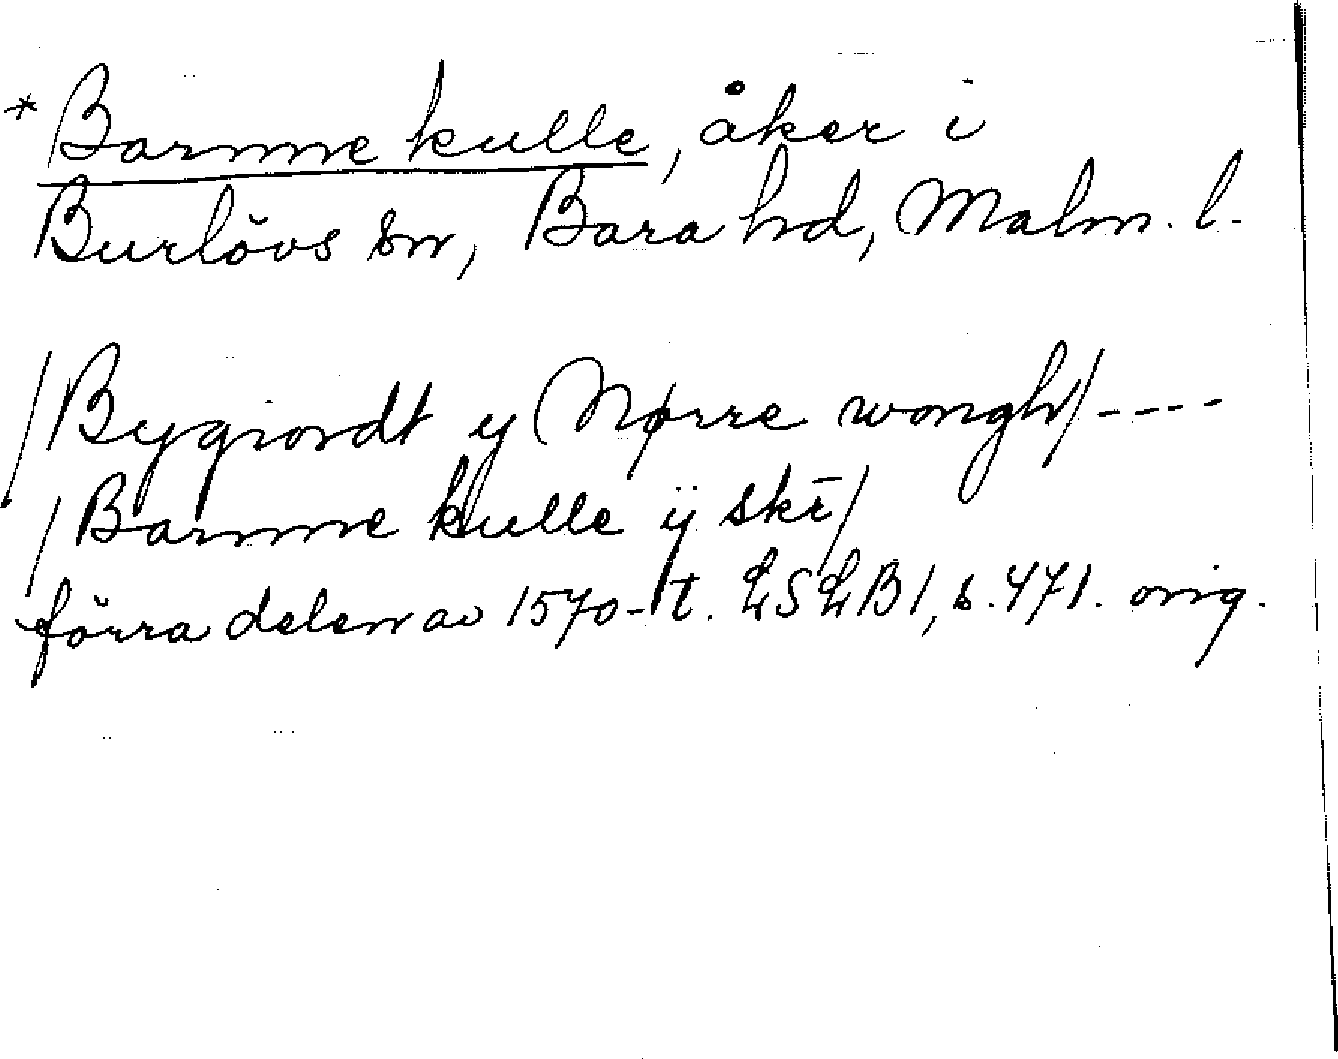 *Barnme kulle, åker i
Burlövs sn, Bara hd, Malm. l.
/Bygiordt y Nørre wongh/----
/Barnme kulle ÿ skē/
förra delen av 1570-t. LSLB1, s. 471. orig.